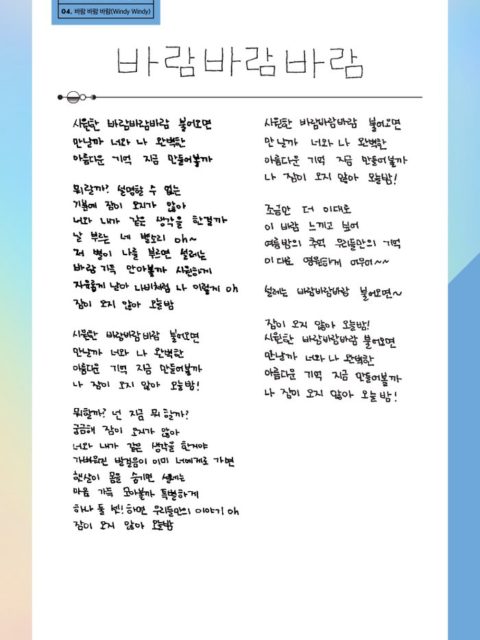 04. 바람 바람 바람(Windy Windy)
바람바람바람
시원한 바람바람바람 불어오면
만날까 너와 나 완벽한
아름다운 기억 지금 만들어볼까
뭐랄까? 설명할 수 없는
기쁨에 잠이 오지가 않아
너와 내가 같은 생각을 한걸까
날 부르는 네 목소리 oh~
저 별이 나를 부르면 설레는
바람 가득 안아볼까 시원하게
자유롭게 날아 나비처럼 나 이렇게 oh
잠이 오지 않아 오늘밤
시원한 바람바람바람 불어오면
만날까 너와 나 완벽한
아름다운 기억 지금 만들어볼까
나 잠이 오지 않아 오늘밤!
뭐할까? 넌 지금 뭐 할까?
궁금해 잠이 오지가 않아
너와 내가 같은 생각을 한거야
가벼워진 발걸음이 이미 너에게로 가면
햇살이 몸을 숨기면 설레는
마음 가득 모아볼까 특별하게
하나 둘 셋! 하면 우리들만의 이야기 oh
잠이 오지 않아 오늘밤
시원한 바람바람바람 불어오면
만날까 너와 나 완벽한
아름다운 기억 지금 만들어볼까
나 잠이 오지 않아 오늘밤!
조금만 더 이대로
이 바람 느끼고 싶어
여름밤의 추억 우리들만의 기억
이대로 영원하게 여우어~~
설레는 바람바람바람 불어오면~
잠이 오지 않아 오늘밤!
시원한 바람바람바람 불어오면
만날까 너와 나 완벽한
아름다운 기억 지금 만들어볼까
나 잠이 오지 않아 오늘밤!